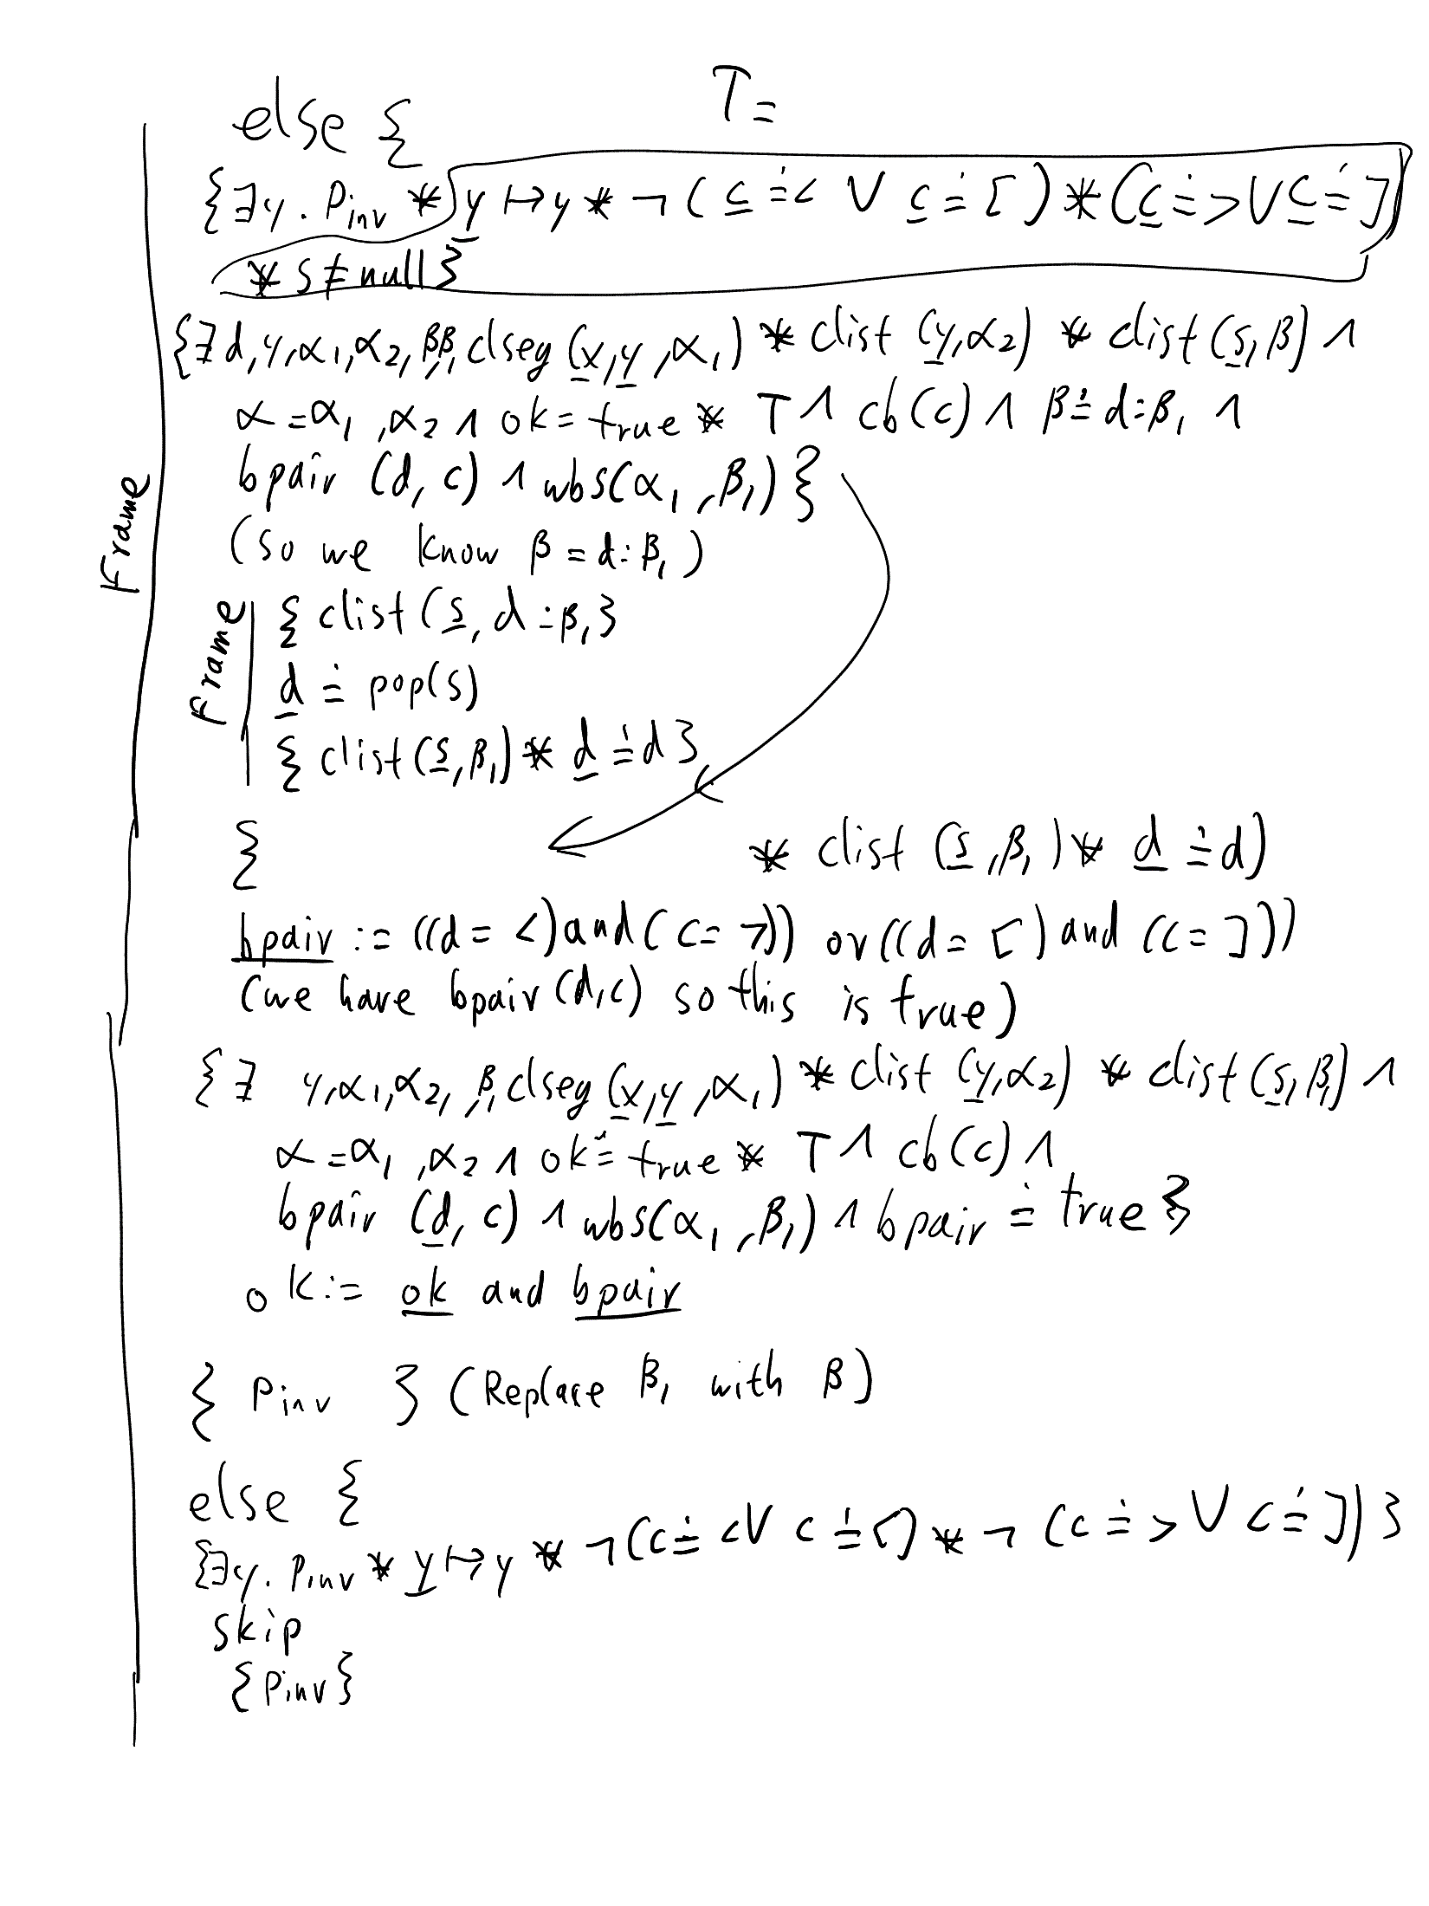 T =
else {
{∃y. Pinv * y ↦ y * ¬(c ≐ < ∨ c ≐ [) * (c ≐ > ∨ c ≐ ])
* s ≠ null}
{∃ d, y, α₁, α₂, β, β₁, clseg (x, y, α₁) * clist (y, α₂) * clist (s, β) ∧
α = α₁, α₂ ∧ ok = true * T ∧ cb(c) ∧ β ≐ d:β₁ ∧
bpair (d, c) ∧ wbs(α₁, β₁)}
(so we know β = d:β₁)
Frame
Frame
{ clist (s, d:β₁}
d ≐ pop(s)
{ clist (s, β₁) * d ≐ d}
{ * clist (s, β₁) * d ≐ d)
bpair := ((d = <) and (c = >)) or ((d = [) and (c = ]))
(we have bpair (d, c) so this is true)
{∃ y, α₁, α₂, β₁, clseg (x, y, α₁) * clist (y, α₂) * clist (s, β₁) ∧
α = α₁, α₂ ∧ ok ≐ true * T ∧ cb(c) ∧
bpair (d, c) ∧ wbs(α₁, β₁) ∧ bpair ≐ true}
ok := ok and bpair
{ Pinv } (Replace β₁ with β)
else {
{∃y. Pinv * y ↦ y * ¬(c ≐ < ∨ c ≐ [) * ¬ (c ≐ > ∨ c ≐ ])}
skip
{Pinv}